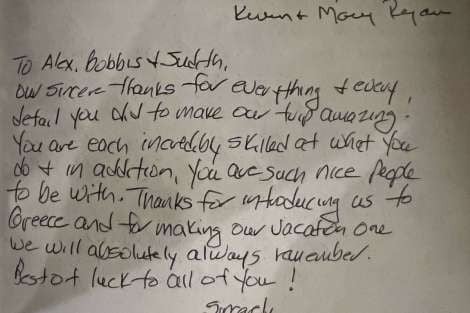 Kevin + Mary Ryan
To Alex, Bobbis + Judith,
Our sincere thanks for everything + every
detail you did to make our trip amazing.
You are each incredibly skilled at what you
do + in addition, you are such nice people
to be with. Thanks for introducing us to
Greece and for making our vacation one
we will absolutely always remember.
Best of luck to all of you!